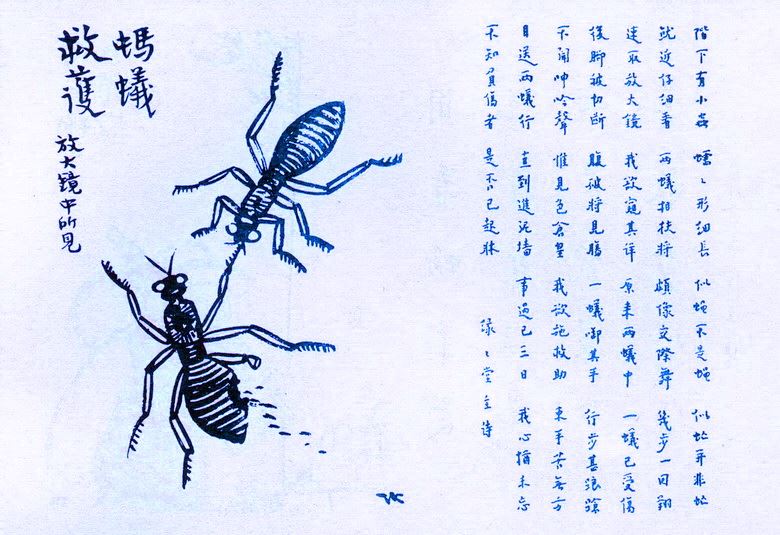 螞蟻
救護
放大鏡中所見
階下有小蟲 蠕〻形細長 似蠅不是蠅 似虻并非虻
就近仔細看 兩蟻相扶將 頗像交際舞 幾步一回翔
速取放大鏡 我欲窺其詳 原來兩蟻中 一蟻已受傷
後腳被切斷 腹破將見腸 一蟻啣其手 行步甚踉蹌
不聞呻吟聲 惟見色倉皇 我欲施救助 束手苦無方
目送兩蟻行 直到進泥墻 事過已三日 我心猶未忘
不知負傷者 是否已起牀
緣〻堂主詩
TK